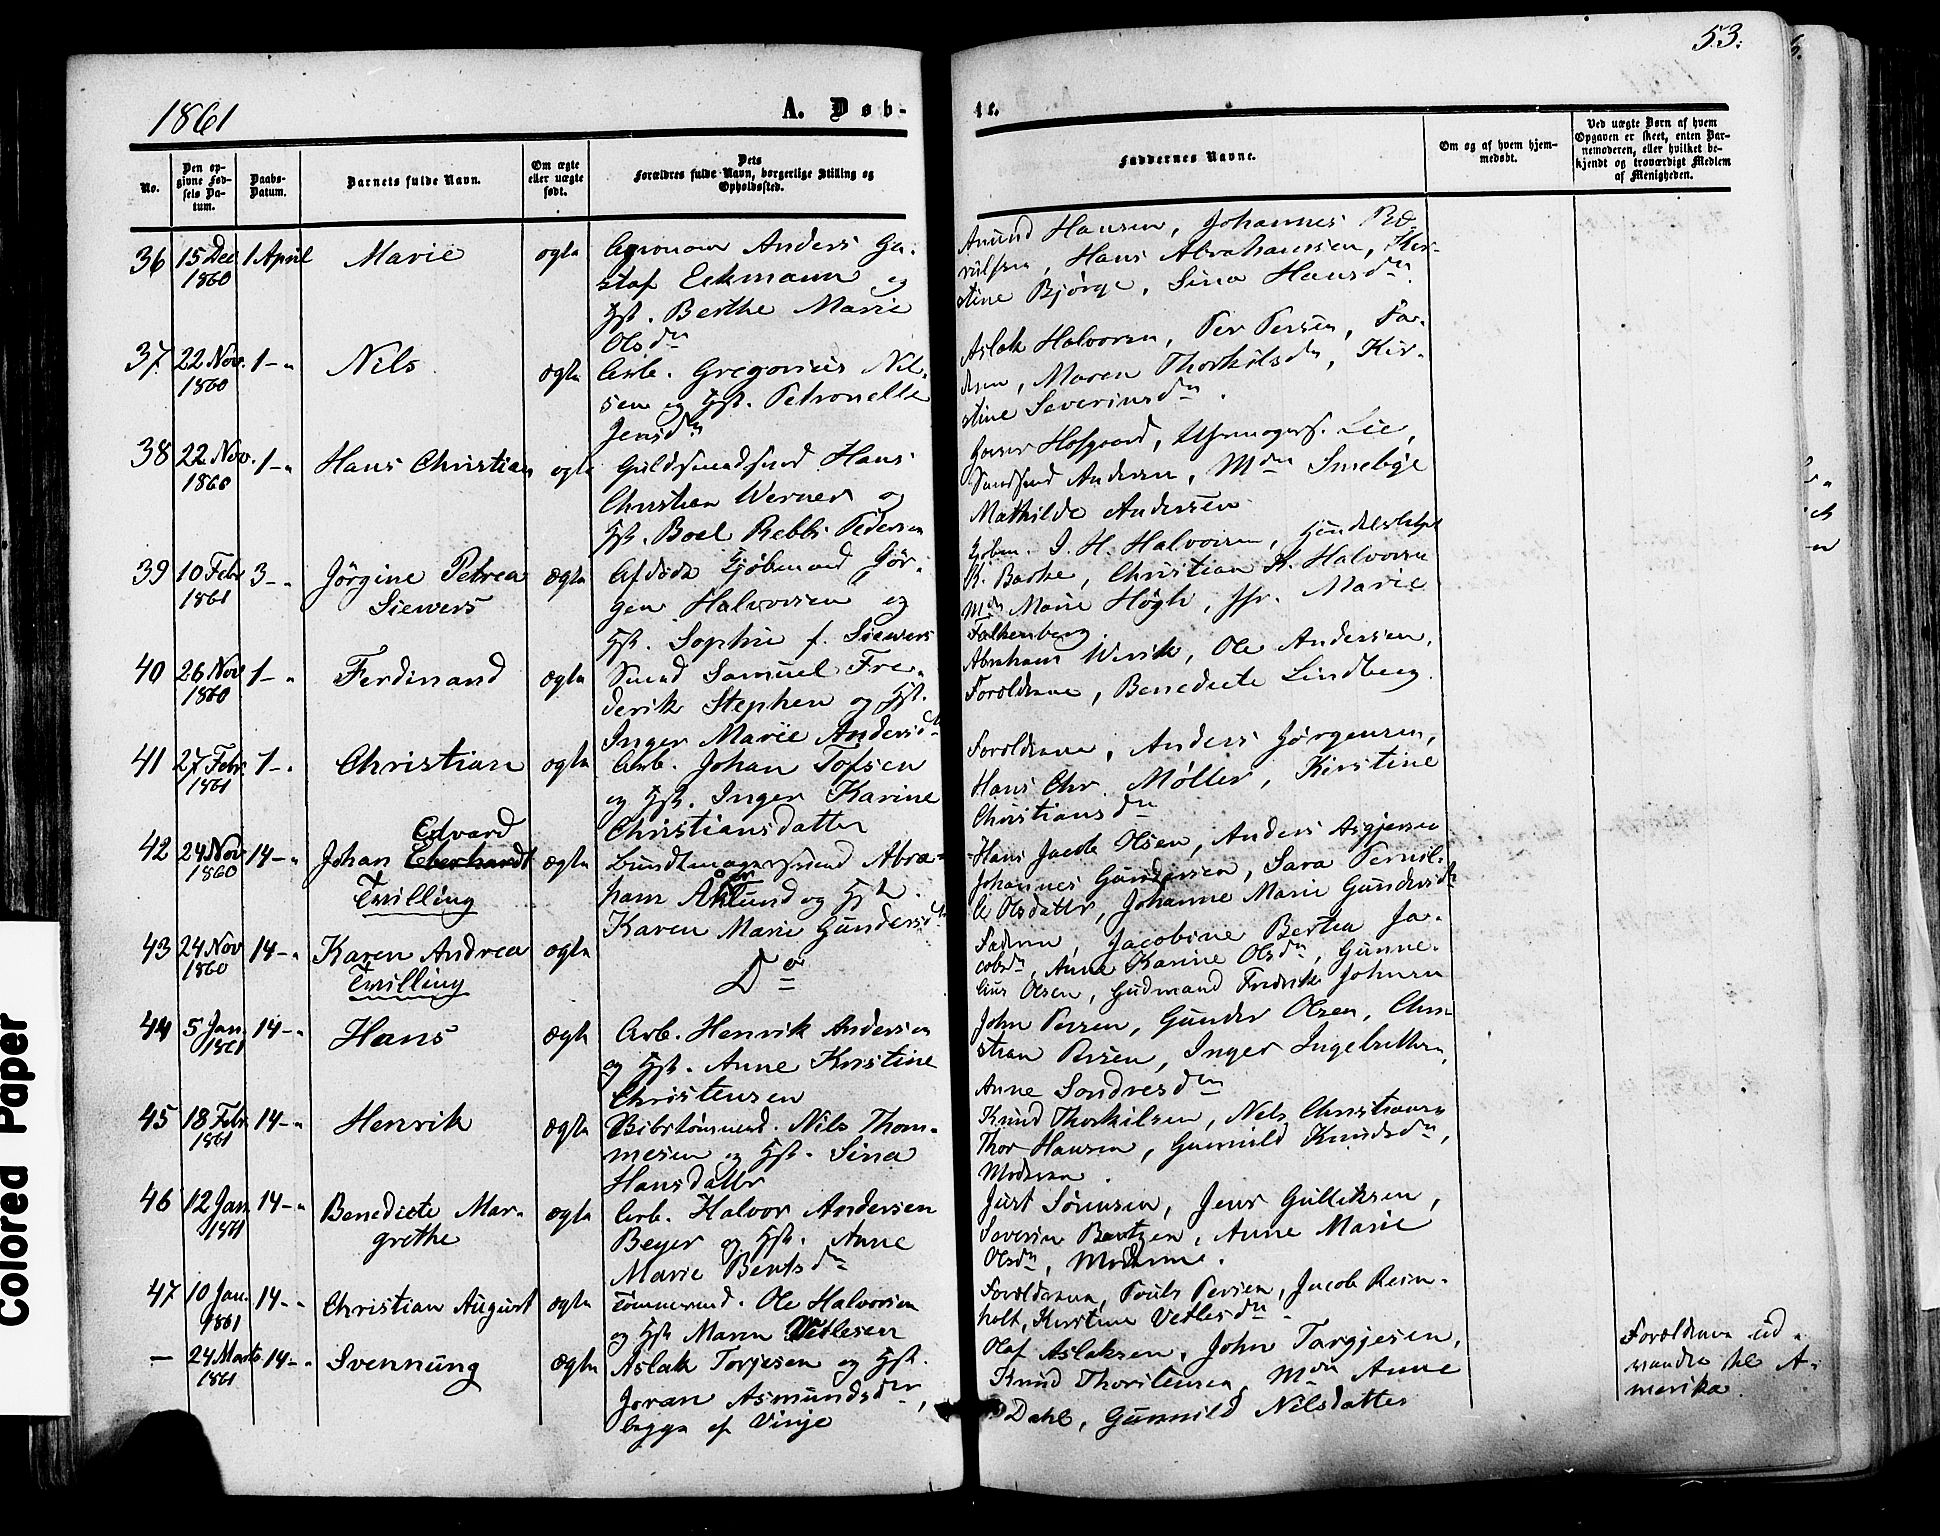 53.
1861
A. Døb-
te.
No.
Den opgivne Fødsels Datum.
Daabs-Datum.
Barnets fulde Navn.
Om ægte eller uægte født.
Dets Forældres fulde Navn, borgerlige Stilling og Opholdssted.
Faddernes Navne.
Om og af hvem hjemmedøbt.
Ved uægte Børn af hvem Opgaven er skeet, enten Barnemoderen, eller hvilket bekjendt og troværdigt Medlem af Menigheden.
36 15 Dec 1860 1 April Marie ægte
Anders Gu-
staf Eckmann og
Hst. Berthe Marie
Olsdn
Amund Hansen, Johannes
Hans Abrahamsen, Kir-
stine Bjørge, Sina Hansdn
37 22 Nov. 1860 1 - " Nils ægte
Arb. Gregorius Nil-
sen og Hst. Petronelle
Jensdn
Aslak Halvorsen, Per Persen, Fa-
deren, Maren Thorkilsdn, Kir-
stine Severinsdn.
38 22 Nov. 1860 1 - " Hans Christian ægte
Guldsmedsvend Hans
Christian Werner og
Hst. Boel Rebk. Pedersen
Hofgaard, Lie,
Andersen, Mdm Smebye
Mathilde Andersen
39 10 Febr 1861 3 - " Jørgine Petrea ægte
Siewers
Afdøde Kjøbmand Jør-
gen Halvorsen og
Hst. Sophie f. Siewers
Kjøbm. J. H. Halvorsen,
K. Barke, Christian H. Halvorsen
Mdm Marie Høgh, Jfr. Marie
Falkenberg
40 26 Nov 1860 1 - " Ferdinand ægte
Smed Samuel Fre-
derik Stephen og Hst.
Inger Marie Andersdtr
Abraham Wirik, Ole Andersen,
Forældrene, Benedicte Lindberg.
41 27 Febr. 1861 1 - " Christian ægte
Arb. Johan Tofsen
og Hst. Inger Karine
Christiansdatter
Forældrene, Anders Jørgensen,
Hans Chr. Møller, Kirstine
Christiansdn
42 24 Nov 1860 14 - " Johan Eberhardt Edvard ægte
Tvilling
Bundtmagersvend Abra-
ham Åkerlund og Hst.
Karen Marie Gundersdtr
Hans Jacob Olsen, Anders Asgjersen
Johannes Gundersen, Sara Pernil-
le Olsdatter, Johanne Marie Gundersdn
43 24 Nov 1860 14 - " Karen Andrea ægte
Tvilling
Do
Faderen, Jacobine Bertea Ja-
cobsdn, Anne Karine Olsdn, Gunne-
lius Olsen, Gudmand Fredrik Johnsen
44 5 Jan 1861 14 - " Hans ægte
Arb. Henrik Andersen
og Hst. Anne Kristine
Christensen
John Persen, Gunder Olsen, Chri-
stian Persen, Inger Ingebretsen,
Anne Sondresdn
45 18 Febr 1861 14 - " Henrik ægte
Bibstømmerd. Nils Thom-
mesen og Hst. Sina
Hansdatter
Knud Thorkilsen, Nels Christiansen
Thor Hansen, Gunnild Knudsdn,
Moderen.
46 12 Jan 1861 14 - " Benedicte Mar- ægte
grethe
Arb. Halvor Andersen
Beyer og Hst. Anne
Marie Bentsdn
Just Sørensen, Jens Gulliksen,
Severin Bentzen, Anne Marie
Olsdn, Moderne.
47 10 Jan. 1861 14 - " Christian August ægte
Tømmermd. Ole Halvorsen
og Hst Maren Vetlesen
Forældrene, Pouls Persen, Jacob Rein-
holt, Kirstine Vetlesdn.
— 24 Marts 1861 14 - " Svennung ægte
Aslak Torjesen og Hst.
Joran Asmundsdn,
begge af Vinje
Olaf Aslaksen, John Targjesen,
Knud Thorstensen, Mdm Anne
Dahl, Gunnild Nilsdatter
Forældrene ud-
vandre til A-
merika.
Colored Paper